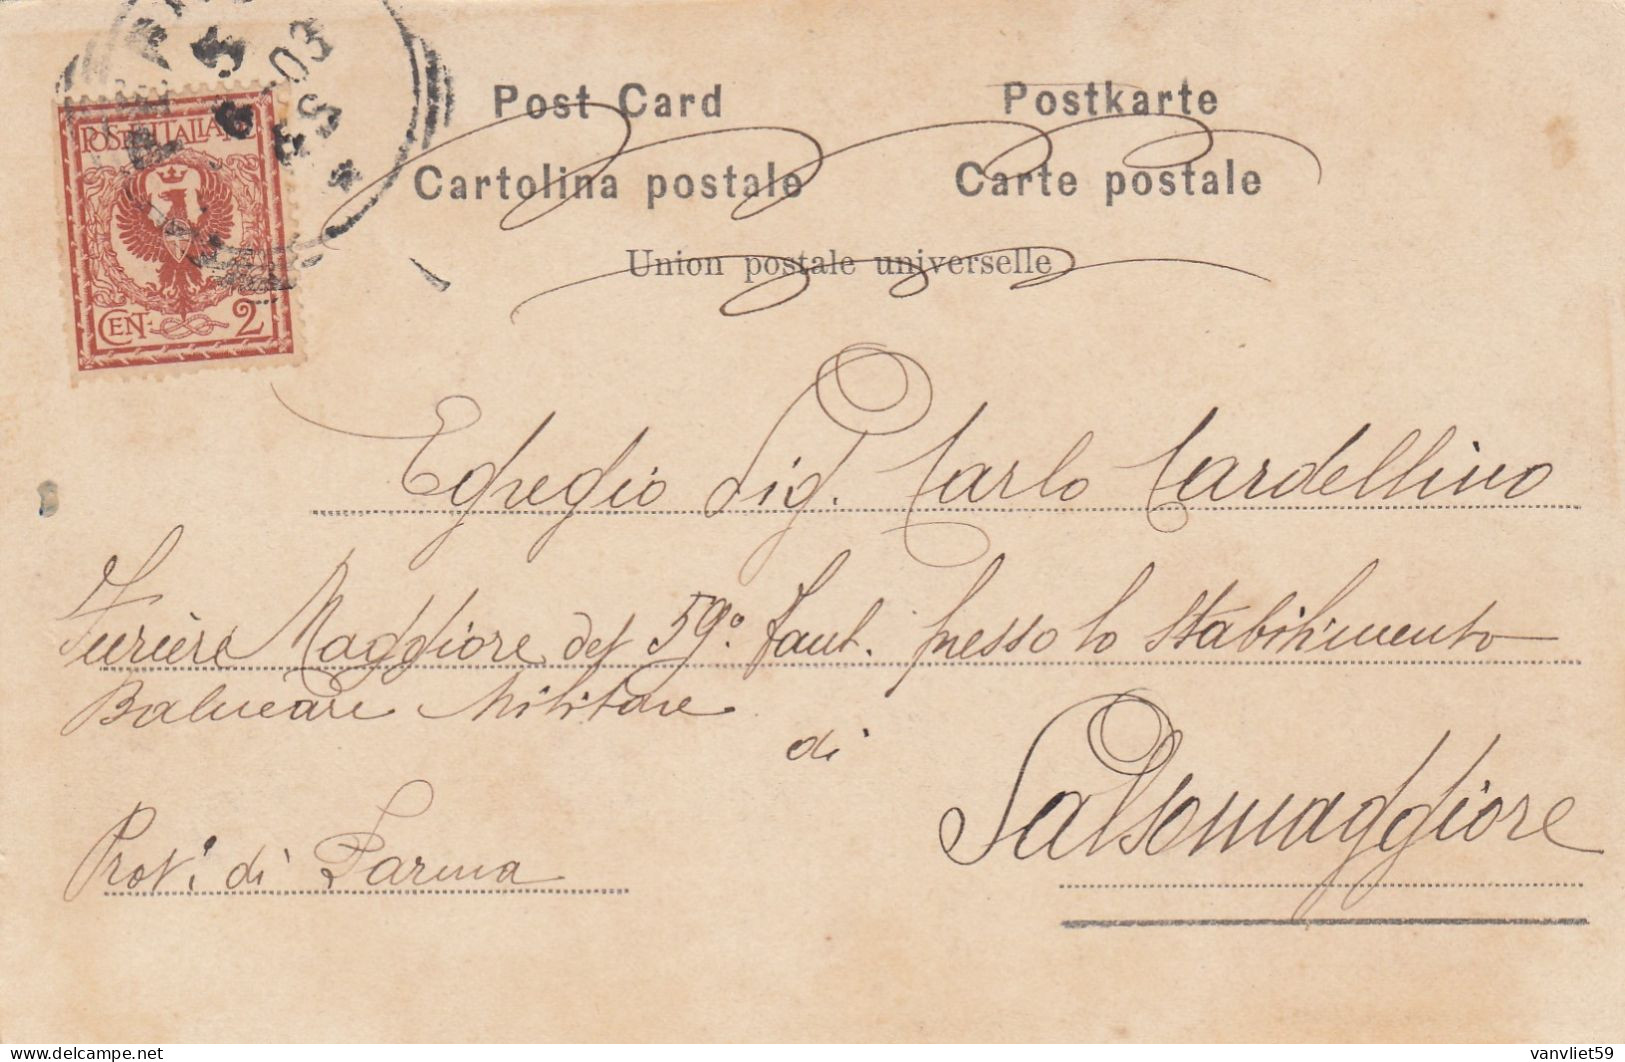 03
POSTE ITALIANE
CEN. 2
Post Card Postkarte
Cartolina postale Carte postale
Union postale universelle
Egregio Sig. Carlo Cardellino
Furiere Maggiore del 59º fant. presso lo Stabilimento
Balneare Militare
di
Salsomaggiore
Prov. di Parma
delcampe.net
vanvliet59